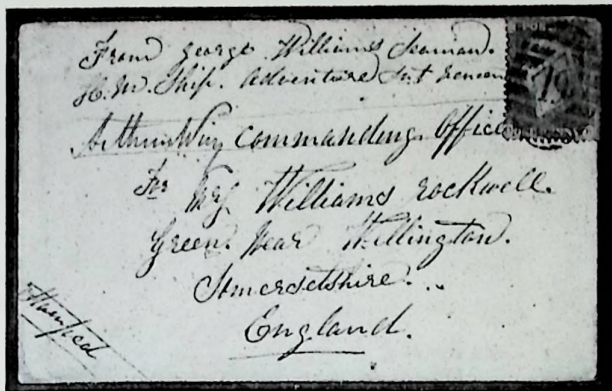 From George Williams Seaman.
H.M. Ship. Adventure
Arthur Wing Commanding. Office
For Mrs Williams Rockwell.
Green. Near Wellington.
Somersetshire.
England.